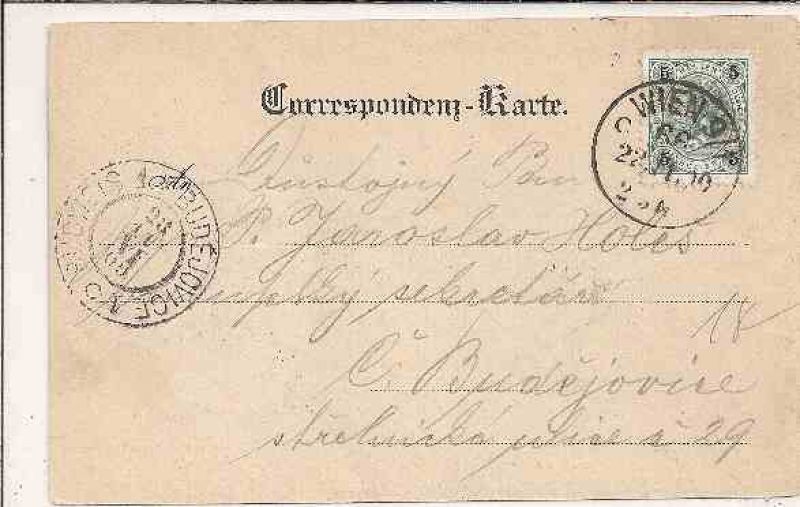 Correspondenz-Karte.
5 5
WIEN
66
BUDWEIS 1 BUDĚJOVICE 1
23
Důstojný Pan
P. Jaroslav Holeš
sekretář
18
Č. Budějovice
střelnická ulice č 29